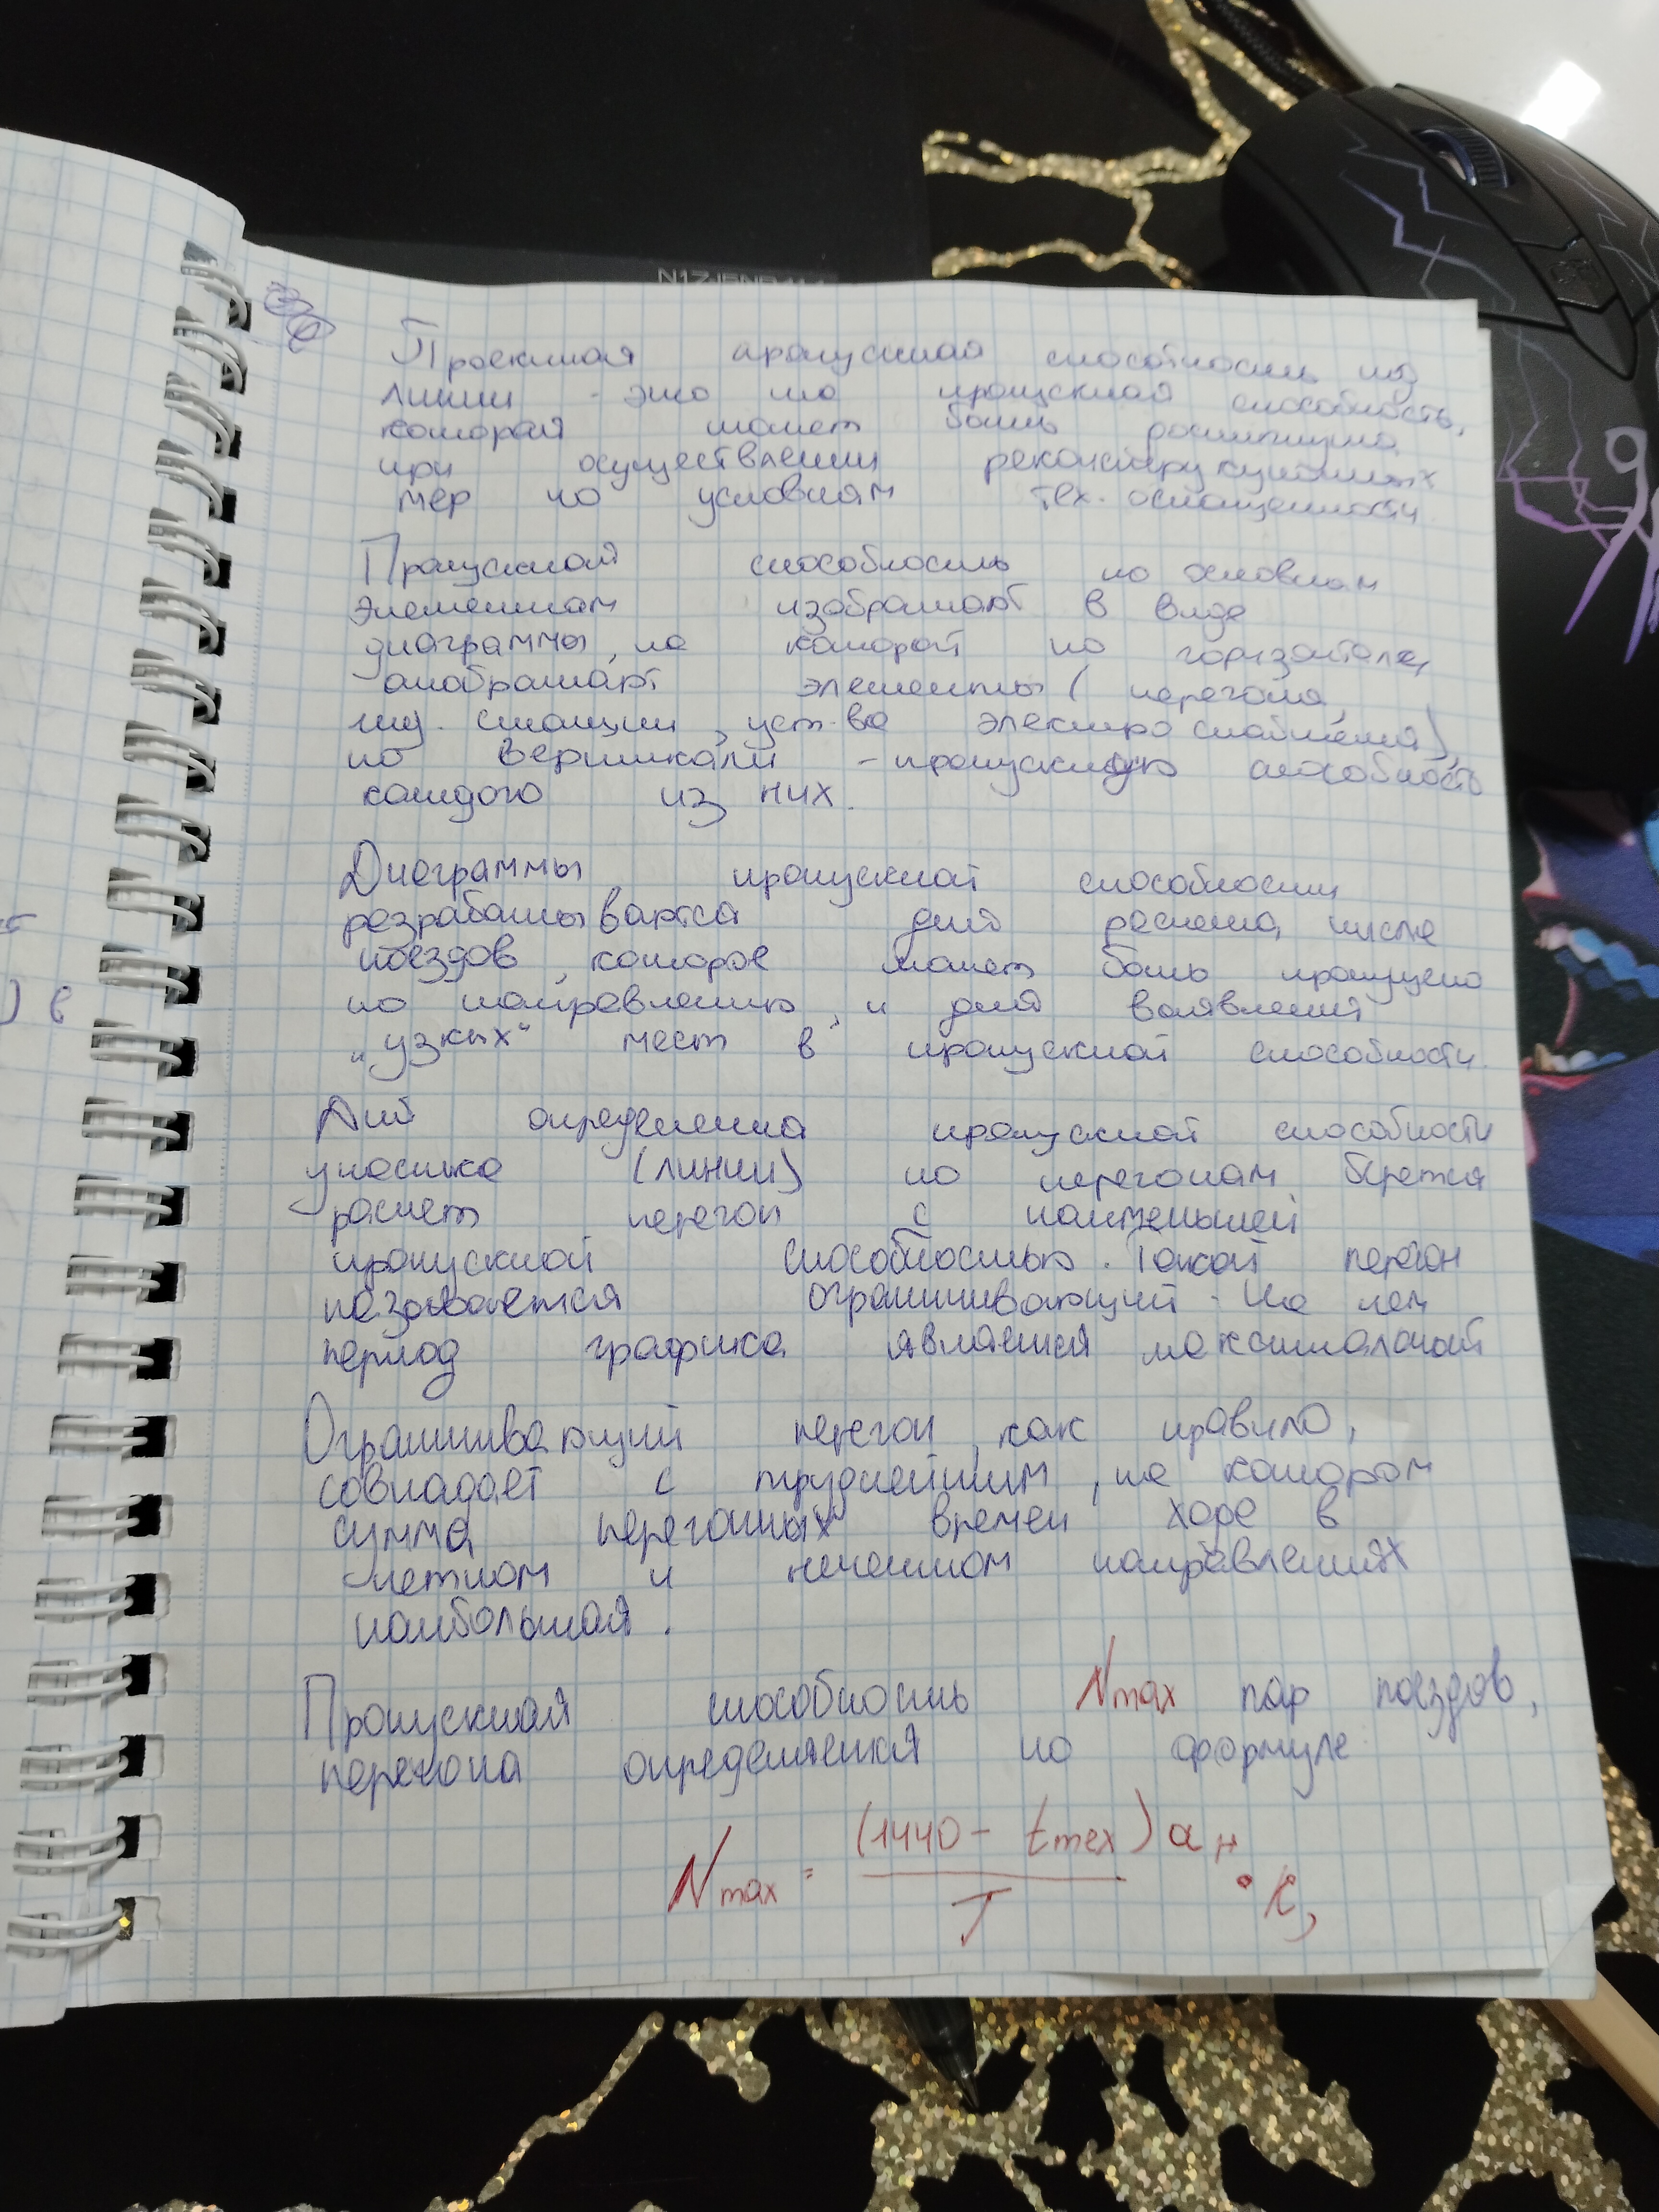 Проектная пропускная способность жд
линии - это та пропускная способность,
которая может быть достигнута
при осуществлении реконструктивных
мер по условиям тех. оснащенности.
Пропускной способность по основным
элементам изображают в виде
диаграммы, на которой по горизонтали
отображают элементы (перегоны,
жд. станции, уст-ва электроснабжения),
по вертикали - пропускную способность
каждого из них.
Диаграммы пропускной способности
разрабатываются для расчета числа
поездов, которое может быть пропущено
по направлению, и для выявления
"узких" мест в пропускной способности.
Для определения пропускной способности
участка (линии) по перегонам берется
расчет перегон с наименьшей
пропускной способностью. Такой перегон
называется ограничивающий. На нем
период графика является максимальной
Ограничивающий перегон, как правило,
совпадает с труднейшим, на котором
сумма перегонных времен хода в
четном и нечетном направлениях
наибольшая.
Пропускная способность Nmax пар поездов,
перегона определяется по формуле
Nmax = (1440 - tтех) αн / T · k,